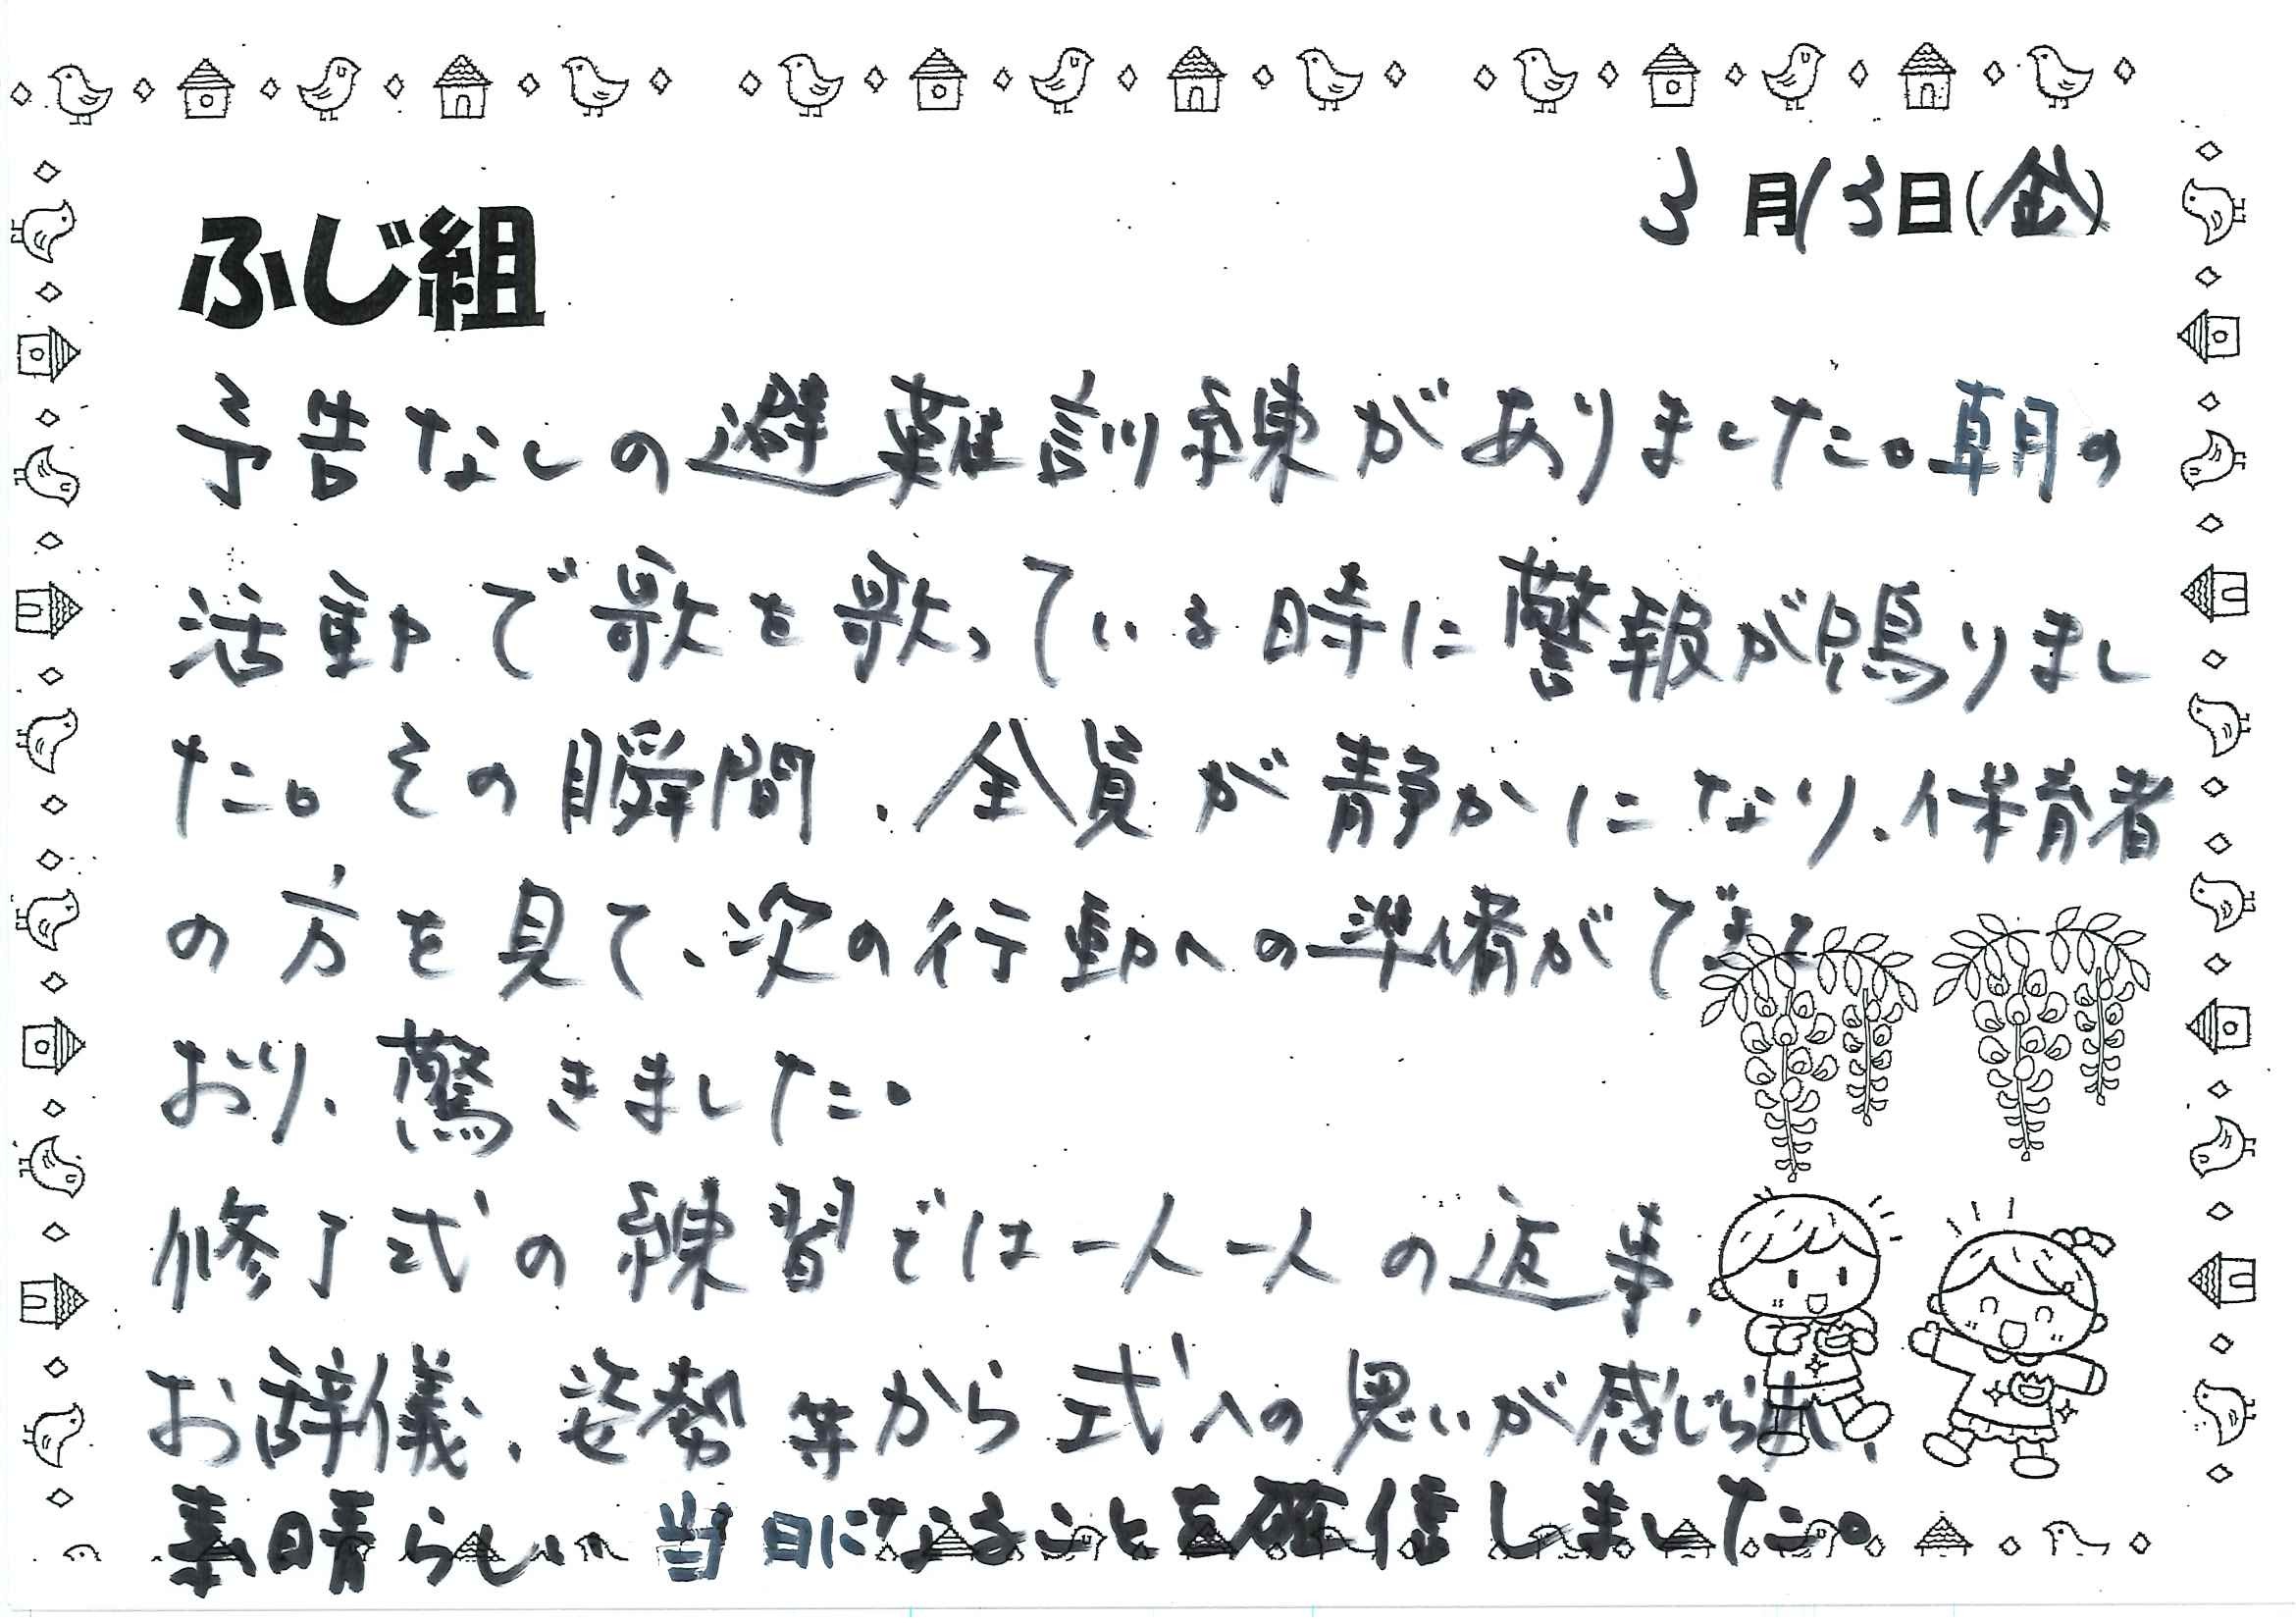 3月13日(金)
ふじ組
予告なしの避難訓練がありました。朝の
活動で歌を歌っている時に警報が鳴りまし
た。その瞬間、全員が静かになり、保育者
の方を見て、次の行動への準備ができて
おり、驚きました。
修了式の練習では一人一人の返事、
お辞儀、姿勢等から式への思いが感じられ、
素晴らしい当日になることを確信しました。